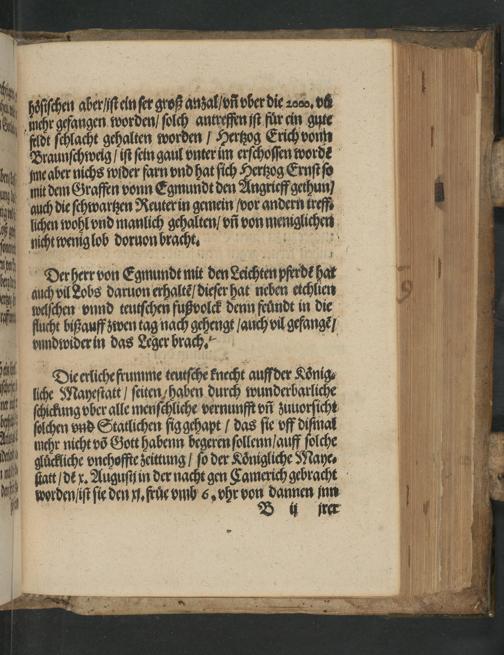 hösischen aber/ist ein ser groß anzal/vñ vber die 2000. vñ
mehr gefangen worden/ solch antreffen ist für ein gute
feldt schlacht gehalten worden / Hertzog Erich vonn
Braunschweig / ist sein gaul vnter im erschossen wordẽ
jme aber nichs wider farn vnd hat sich Hertzog Ernst so
mit dem Graffen vonn Egmundt den Angrieff gethun/
auch die schwartzen Reuter in gemein /vor andern treff⸗
lichen wohl vnd manlich gehalten/ vñ von meniglichen
nicht wenig lob doruon bracht.
Der herr von Egmundt mit den Leichten pferdẽ hat
auch vil Lobs daruon erhaltẽ/ dieser hat neben etchlien
welschen vnnd teutschen fußvolck denn feündt in die
flucht bißauff zwen tag nach gehengt /auch vil gefangẽ/
vnndwider in das Leger brach.
Die erliche frumme teutsche knecht auff der König⸗
liche Mayestatt / seiten/ haben durch wunderbarliche
schickung vber alle menschliche vernunfft vñ zuuorsicht
solchen vnd Statlichen sig gehapt / das sie vff dißmal
mehr nicht võ Gott habenn begeren sollenn/ auff solche
glückliche vnehoffte zeittung / so der Königliche Maye⸗
statt / dẽ x. Augustj in der nacht gen Camerich gebracht
worden/ist sie den xj. früe vmb 6. vhr von dannen jnn
B ij jrer